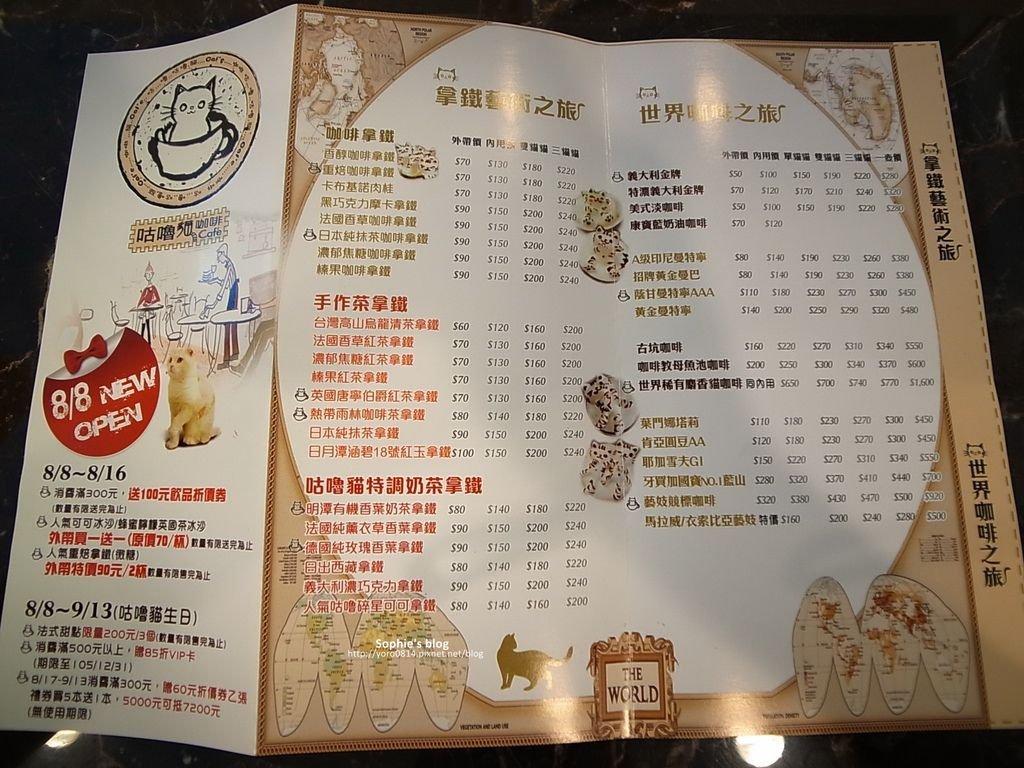 咕嚕貓咖啡
& Café
8/8 NEW
OPEN
8/8~8/16
消費滿300元，送100元飲品折價券
(數量有限送完為止)
人氣可可冰沙/蜂蜜檸檬英國茶冰沙
外帶買一送一(原價70/杯)數量有限送完為止
人氣重焙拿鐵(微糖)
外帶特價90元/2杯數量有限售完為止
8/8~9/13(咕嚕貓生日)
法式甜點限量200元/3個(數量有限售完為止)
消費滿500元以上，贈85折VIP卡
(期限至105/12/31)
8/17-9/13消費滿300元，贈60元折價券乙張
禮券買5本送1本，5000元可抵7200元
(無使用期限)
拿鐵藝術之旅
咖啡拿鐵 外帶價 內用價 雙貓貓 三貓貓
香醇咖啡拿鐵 $70 $130 $180 $220
重焙咖啡拿鐵 $70 $130 $180 $220
卡布基諾肉桂 $70 $130 $180 $220
黑巧克力摩卡拿鐵 $90 $150 $200 $240
法國香草咖啡拿鐵 $90 $150 $200 $240
日本純抹茶咖啡拿鐵 $90 $150 $200 $240
濃郁焦糖咖啡拿鐵 $90 $150 $200 $240
榛果咖啡拿鐵 $90 $150 $200 $240
手作茶拿鐵
台灣高山烏龍清茶拿鐵 $60 $120 $160 $200
法國香草紅茶拿鐵 $70 $130 $160 $200
濃郁焦糖紅茶拿鐵 $70 $130 $160 $200
榛果紅茶拿鐵 $70 $130 $160 $200
英國唐寧伯爵紅茶拿鐵 $70 $130 $160 $200
熱帶雨林咖啡茶拿鐵 $80 $140 $180 $220
日本純抹茶拿鐵 $90 $150 $200 $240
日月潭涵碧18號紅玉拿鐵 $100 $150 $200 $240
咕嚕貓特調奶茶拿鐵
明潭有機香葉奶茶拿鐵 $80 $140 $180 $220
法國純薰衣草香葉拿鐵 $90 $150 $200 $240
德國純玫瑰香葉拿鐵 $90 $150 $200 $240
日出西藏拿鐵 $80 $140 $180 $220
義大利濃巧克力拿鐵 $90 $150 $200 $240
人氣咕嚕碎星可可拿鐵 $80 $140 $160 $200
Sophie's blog
http://yoro0814.pixnet.net/blog
VEGETATION AND LAND USE
世界咖啡之旅
外帶價 內用價 單貓貓 雙貓貓 三貓貓 一壺價
義大利金牌 $50 $100 $150 $190 $220 $280
特濃義大利金牌 $70 $120 $170 $210 $240 $320
美式淡咖啡 $50 $100 $150 $190 $220 $280
康寶藍奶油咖啡 $70 $120
A級印尼曼特寧 $80 $140 $190 $230 $260 $380
招牌黃金曼巴 $80 $140 $190 $230 $260 $380
蔭甘曼特寧AAA $110 $180 $230 $270 $300 $450
黃金曼特寧 $140 $200 $250 $290 $320 $480
古坑咖啡 $160 $220 $270 $310 $340 $550
咖啡教母魚池咖啡 $200 $250 $300 $340 $370 $600
世界稀有麝香貓咖啡 同內用 $650 $700 $740 $770 $1,600
葉門娜塔莉 $110 $180 $230 $270 $300 $450
肯亞圓豆AA $120 $180 $230 $270 $300 $450
耶加雪夫G1 $150 $220 $270 $310 $340 $550
牙買加國寶NO.1藍山 $280 $320 $370 $410 $440 $700
藝妓競標咖啡 $320 $380 $430 $470 $500 $920
馬拉威/衣索比亞藝妓 特價$160 $200 $240 $280 $500
THE
WORLD
POPULATION DENSITY
拿鐵藝術之旅
世界咖啡之旅